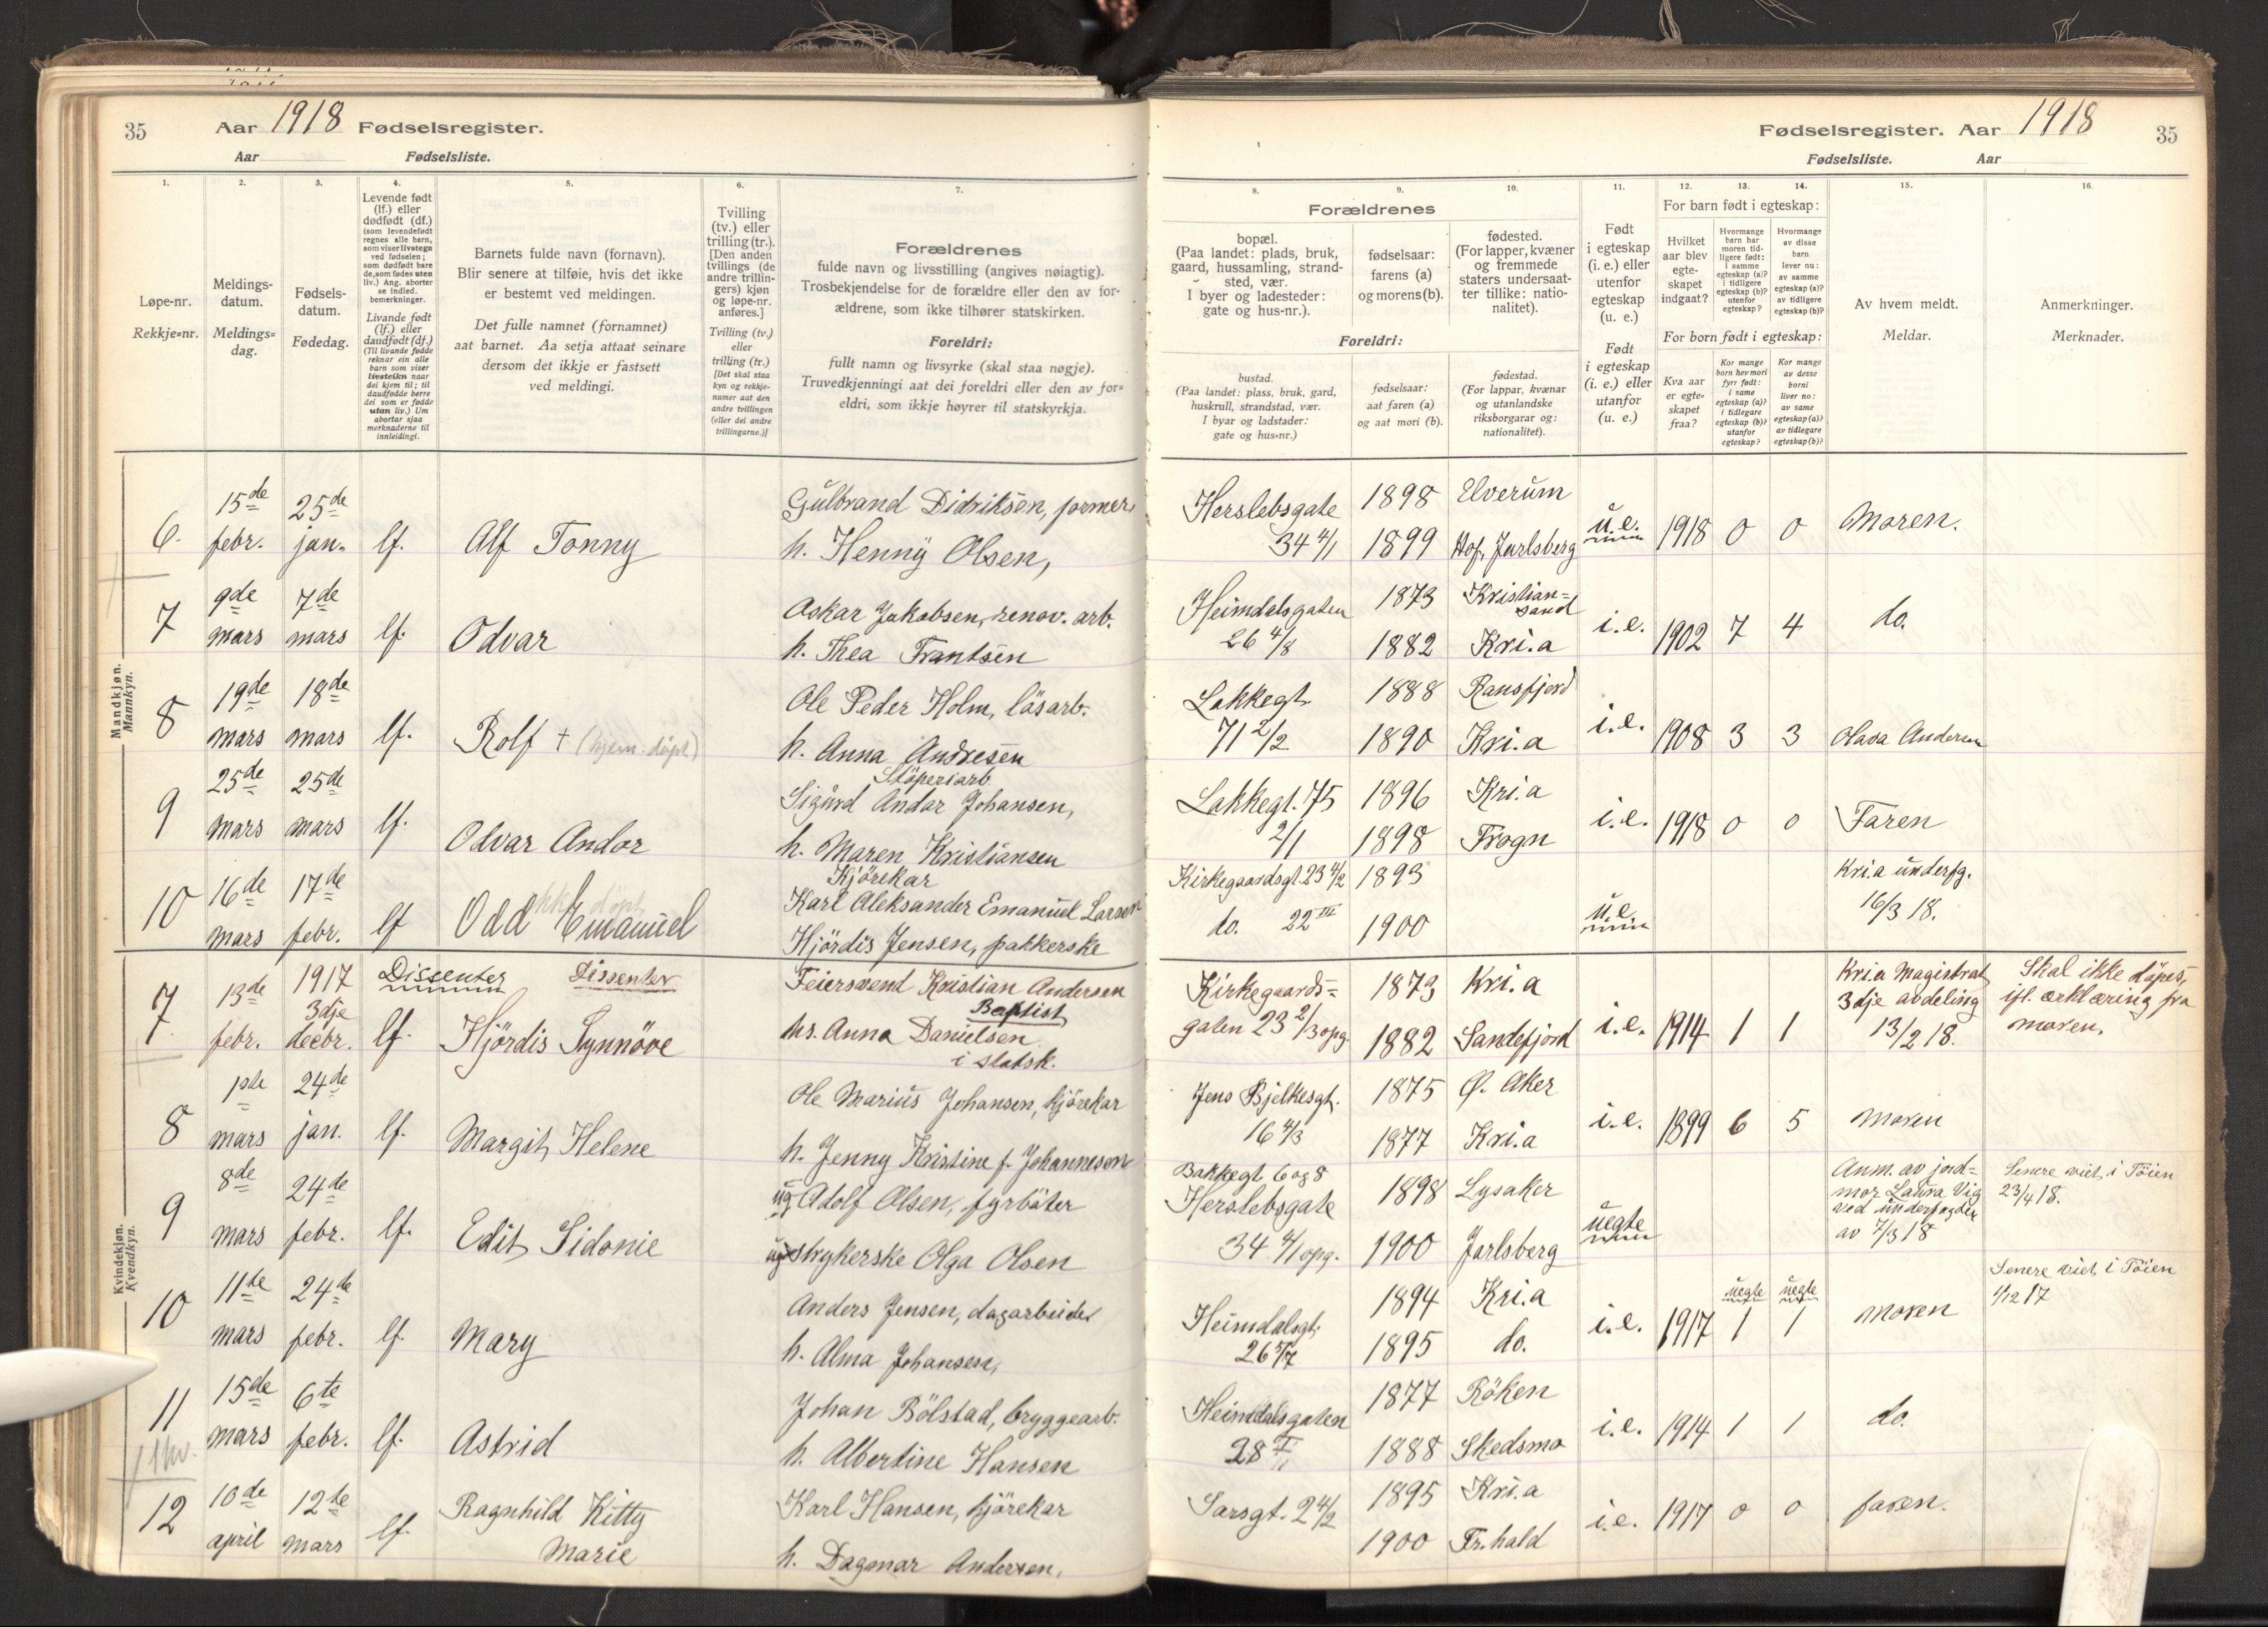 35 Aar 1918 Fødselsregister.
Aar Fødselsliste.
1. 2. 3. 4. 5. 6. 7.
Løpe-nr.
Rekkje=nr.
Meldings-
datum.
Meldings=
dag.
Fødsels-
datum.
Fødedag.
Levende født
(lf.) eller
dødfødt (df.)
(som levendefødt
regnes alle barn,
som viser livstegn
ved fødselen;
som dødfødt bare
de, som fødes uten
liv.) Ang. aborter
se indled.
bemerkninger.
Livande født
(lf.) eller
daudfødt (df.)
(Til livande fødde
reknar ein alle
barn som viser
livsteikn naar
dei kjem til; til
daudfødde berre
dei som er fødde
utan liv.) Um
abortar sjaa
merknaderne til
innleidingi.
Barnets fulde navn (fornavn).
Blir senere at tilføie, hvis det ikke
er bestemt ved meldingen.
Det fulle namnet (fornamnet)
aat barnet. Aa setja attaat seinare
dersom det ikkje er fastsett
ved meldingi.
Tvilling
(tv.) eller
trilling (tr.).
[Den anden
tvillings (de
andre trillin-
gers) kjøn
og løpe-nr.
anføres.]
Tvilling (tv.)
eller
trilling (tr.)
[Det skal staa
kyn og rekkje-
numer aat den
andre tvillingen
(eller dei andre
trillingarne.)]
Forældrenes
fulde navn og livsstilling (angives nøiagtig).
Trosbekjendelse for de forældre eller den av for-
ældrene, som ikke tilhører statskirken.
Foreldri:
fullt namn og livsyrke (skal staa nøgje).
Truvedkjenningi aat dei foreldri eller den av for=
eldri, som ikkje høyrer til statskyrkja.
Mandkjøn.
Mannkyn.
6. 15de febr. 25de jan. lf. Alf Tonny
Gulbrand Didriksen, former
h. Henny Olsen,
7 9de mars 7de mars lf. Odvar
Askar Jakobsen, renov. arb.
h. Thea Frantsen
8 19de mars 18de mars lf. Rolf † (hjem. døpt)
Ole Peder Holm, läsarb.
h. Anna Andresen
9 25de mars 25de mars lf. Odvar Andor
Støperiarb
Sigurd Andor Johansen,
h. Maren Kristiansen
10 16de mars 17de febr. lf Odd Emanuel
Kjørekar
Karl Aleksander Emanuel Larsen
Hjördis Jensen, pakkerske
Kvindekjøn.
Kvendkyn.
7. 13de febr. 1917 3dje decbr. lf. Dissenter Dissenter
Hjördis Synnöve
Feiersvend Kristian Andersen
Baptist
hs. Anna Danielsen
i statsk.
8 1ste mars 24de jan. lf. Margit Helene
Ole Marius Johansen, kjörekar
h. Jenny Kristine f. Johannesen
9 8de mars 24de febr. lf. Edit Sidonie
ug Adolf Olsen, fyrböter
ug strykerske Olga Olsen
10 11te mars 24de febr. lf. Mary
Anders Jensen, dagarbeider
h. Alma Johansen,
11 15de mars 6te febr. lf. Astrid
Johan Bölstad, bryggearb.
h. Albertine Hansen
12 10de april 12te mars lf. Ragnhild Kitty
Marie
Karl Hansen, kjörekar
h. Dagmar Andersen,
Fødselsregister. Aar 1918 35
Fødselsliste. Aar
8. 9. 10. 11. 12. 13. 14. 15. 16.
Forældrenes
bopæl.
(Paa landet: plads, bruk,
gaard, hussamling, strand-
sted, vær.
I byer og ladesteder:
gate og hus-nr.).
fødselsaar:
farens (a)
og morens (b).
fødested.
(For lapper, kvæner
og fremmede
staters undersaat-
ter tillike: natio-
nalitet).
Foreldri:
bustad.
(Paa landet: plass, bruk, gard,
huskrull, strandstad, vær.
I byar og ladstader:
gate og hus=nr.)
fødselsaar:
aat faren (a)
og aat mori (b).
fødestad.
(For lappar, kvænar
og utanlandske
riksborgarar og:
nationalitet).
Født
i egteskap
(i. e.) eller
utenfor
egteskap
(u. e.)
Født
i egteskap
(i. e.) eller
utanfor
(u. e.)
For barn født i egteskap:
Hvilket
aar blev
egte-
skapet
indgaat?
Hvormange
barn har
moren tid-
ligere født:
i samme
egteskap (a)?
i tidligere
egteskap (b)?
utenfor
egteskap?
Hvormange
av disse
barn
lever nu:
av samme
egteskap (a)?
av tidligere
egteskap (b)?
For born født i egteskap:
Kva aar
er egte=
skapet
fraa?
Kor mange
born hev mori
fyrr født:
i same
egteskap (a)?
i tidlegare
egteskap (b)?
utanfor
egteskap?
Kor mange
av desse
borni
liver no:
av same
egteskap (a)?
av tidlegare
egteskap (b)?
Av hvem meldt.
Meldar.
Anmerkninger.
Merknader.
Herslebsgate 1898 Elverum
34 4/1 1899 Hof, Jarlsberg u.e. 1918 0 0 Moren.
Heimdalsgaten 1873 Kristian=
sand
26 4/8 1882 Kri.a i.e. 1902 7 4 do.
Lakkegt. 1888 Ransfjord
71 2/2 1890 Kri.a i.e. 1908 3 3 Olava Andersen
Lakkegt. 75 1896 Kri.a
2/1 1898 Frogn i.e. 1918 0 0 Faren
Kirkegaardsgt. 23 4/2 1893
do. 22 III 1900 u.e.
Kria underfg.
16/3 18.
Kirkegaards= 1873 Kri.a
gaten 23 2/3 opg. 1882 Sandefjord i.e. 1914 1 1
Kria Magistrat
3dje avdeling
13/2 18.
Skal ikke döpes,
ifl. erklæring fra
moren.
Jens Bjelkesgt. 1875 Ø. Aker
16 4/3 1877 Kri.a i.e. 1899 6 5 Moren
Bakkegt 6 og 8
Herslebsgate 1898 Lysaker
34 4/1 opg. 1900 Jarlsberg uegte
Anm. av jord=
mor Laura Vig
ved underfogden
av 7/3 18
Senere viet i Töien
23/4 18.
Heimdalsgt. 1894 Kri.a
26 5/7 1895 do. i.e. 1917 uegte 1 uegte 1 Moren
Senere viet i Töien
1/12 17
Heimdalsgaten 1877 Röken
28 1888 Skedsmo i.e. 1914 1 1 do.
Sarsgt. 2 4/2 1895 Kri.a
1900 Fr.hald i.e. 1917 0 0 faren.